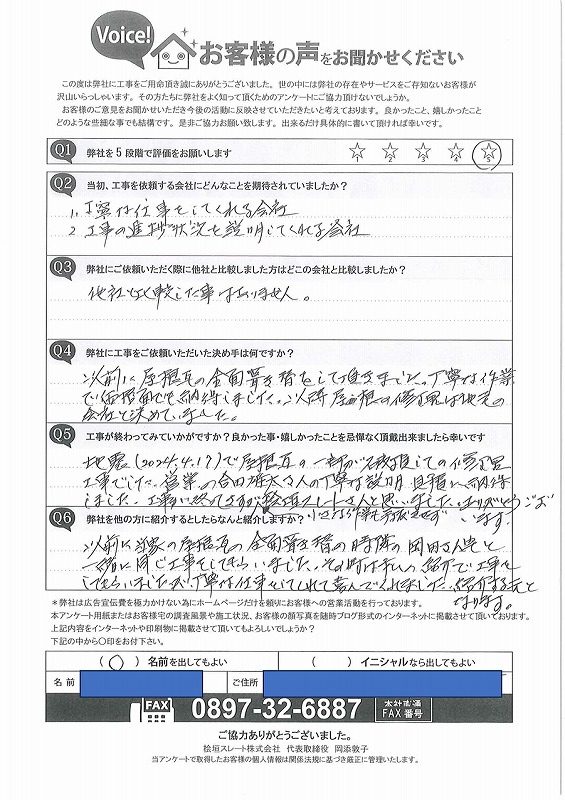 Voice! お客様の声をお聞かせください
この度は弊社に工事をご用命頂き誠にありがとうございました。世の中には弊社の存在やサービスをご存知ないお客様が
沢山いらっしゃいます。その方たちに弊社をよく知って頂くためのアンケートにご協力頂けないでしょうか。
お客様のご意見をお聞かせいただき今後の活動に反映させていただきたいと考えております。良かったこと、嬉しかったこと
どのような些細な事でも結構です。是非ご協力お願い致します。出来るだけ具体的に書いて頂ければ幸いです。
Q1 弊社を5段階で評価をお願いします ☆1 ☆2 ☆3 ☆4 ☆5
Q2 当初、工事を依頼する会社にどんなことを期待されていましたか？
1. 丁寧な仕事をしてくれる会社
2. 工事の進捗状況を説明してくれる会社
Q3 弊社にご依頼いただく際に他社と比較しました方はどこの会社と比較しましたか？
他社と比較した事はありません。
Q4 弊社に工事をご依頼いただいた決め手は何ですか？
以前に屋根瓦の全面葺き替をして頂きました。丁寧な作業
で価格面でも納得しました。以降屋根の修理は
会社と決めていました。
Q5 工事が終わってみていかがですか？良かった事・嬉しかったことを忌憚なく頂戴出来ましたら幸いです
地震(2024.4.17)で屋根瓦の一部が の修理
工事でした。営業の合田雄大さんの丁寧な説明、見積に納得
しました。 スレートさんと思いました。ありがとうござ
います。
小さな作業も手抜きせず
Q6 弊社を他の方に紹介するとしたらなんと紹介しますか？
以前に我家の屋根瓦の全面葺き替の時隣の岡田さん宅と
一緒に同じ工事をしてもらいました。その時は私の紹介で工事を
してもらいましたが丁寧な仕事をしてくれて喜んでくれました。紹介する元と
なります。
＊弊社は広告宣伝費を極力かけない為にホームページだけを頼りにお客様への営業活動を行っております。
本アンケート用紙またはお客様宅の調査風景や施工状況、お客様の顔写真を随時ブログ形式のインターネットに掲載させて頂いております。
上記内容をインターネットや印刷物に掲載させて頂いてもよろしいでしょうか？
下記の中から〇印をお付下さい。
（○）名前を出してもよい （ ）イニシャルなら出してもよい
名前 ご住所
FAX 0897-32-6887 本社直通 FAX番号
ご協力ありがとうございました。
桧垣スレート株式会社 代表取締役 岡添敦子
当アンケートで取得したお客様の個人情報は関係法規に基づき厳正に管理いたします。